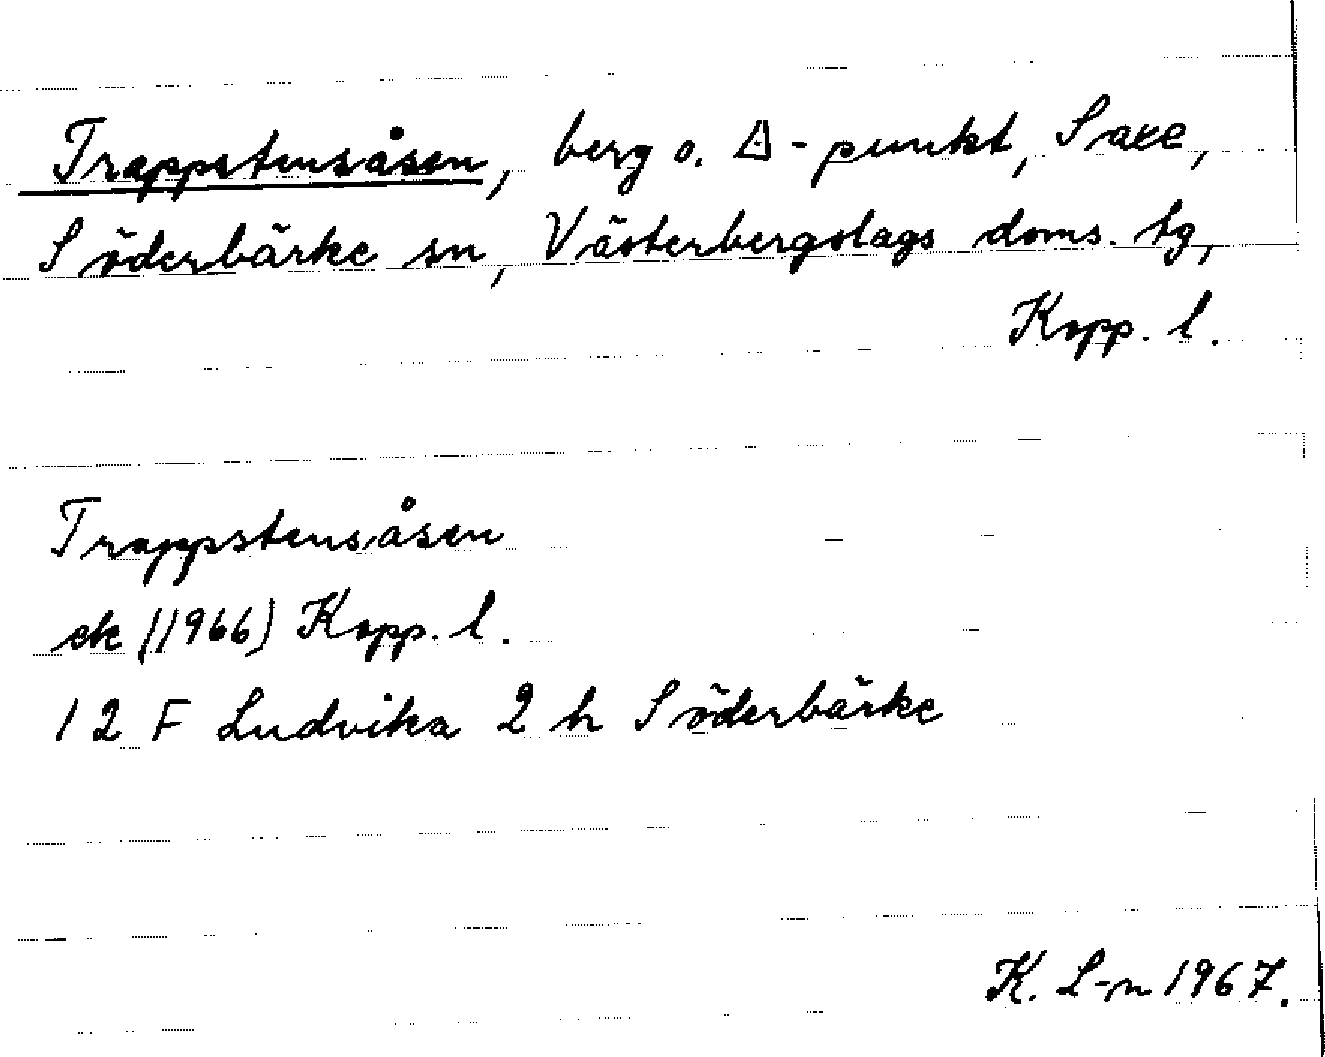 Trappstensåsen, berg o. △-punkt, Saxe,
Söderbärke sn, Västerbergslags doms. tg,
Kopp. l.
Trappstensåsen
ek (1966) Kopp. l.
12 F Ludvika 2 h Söderbärke
K. L-n 1967.